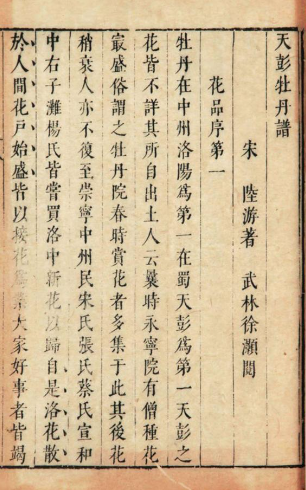 天彭牡丹譜
宋 陸游著 武林徐灝閱
花品序第一
牡丹在中州洛陽爲第一在蜀天彭爲第一天彭之
花皆不詳其所自出土人云曩時永寧院有僧種花
最盛俗謂之牡丹院春時賞花者多集于此其後花
稍衰人亦不復至崇寧中州民宋氏張氏蔡氏宣和
中石子灘楊氏皆嘗買洛中新花以歸自是洛花散
於人間花戶始盛皆以接花爲業大家好事者皆竭